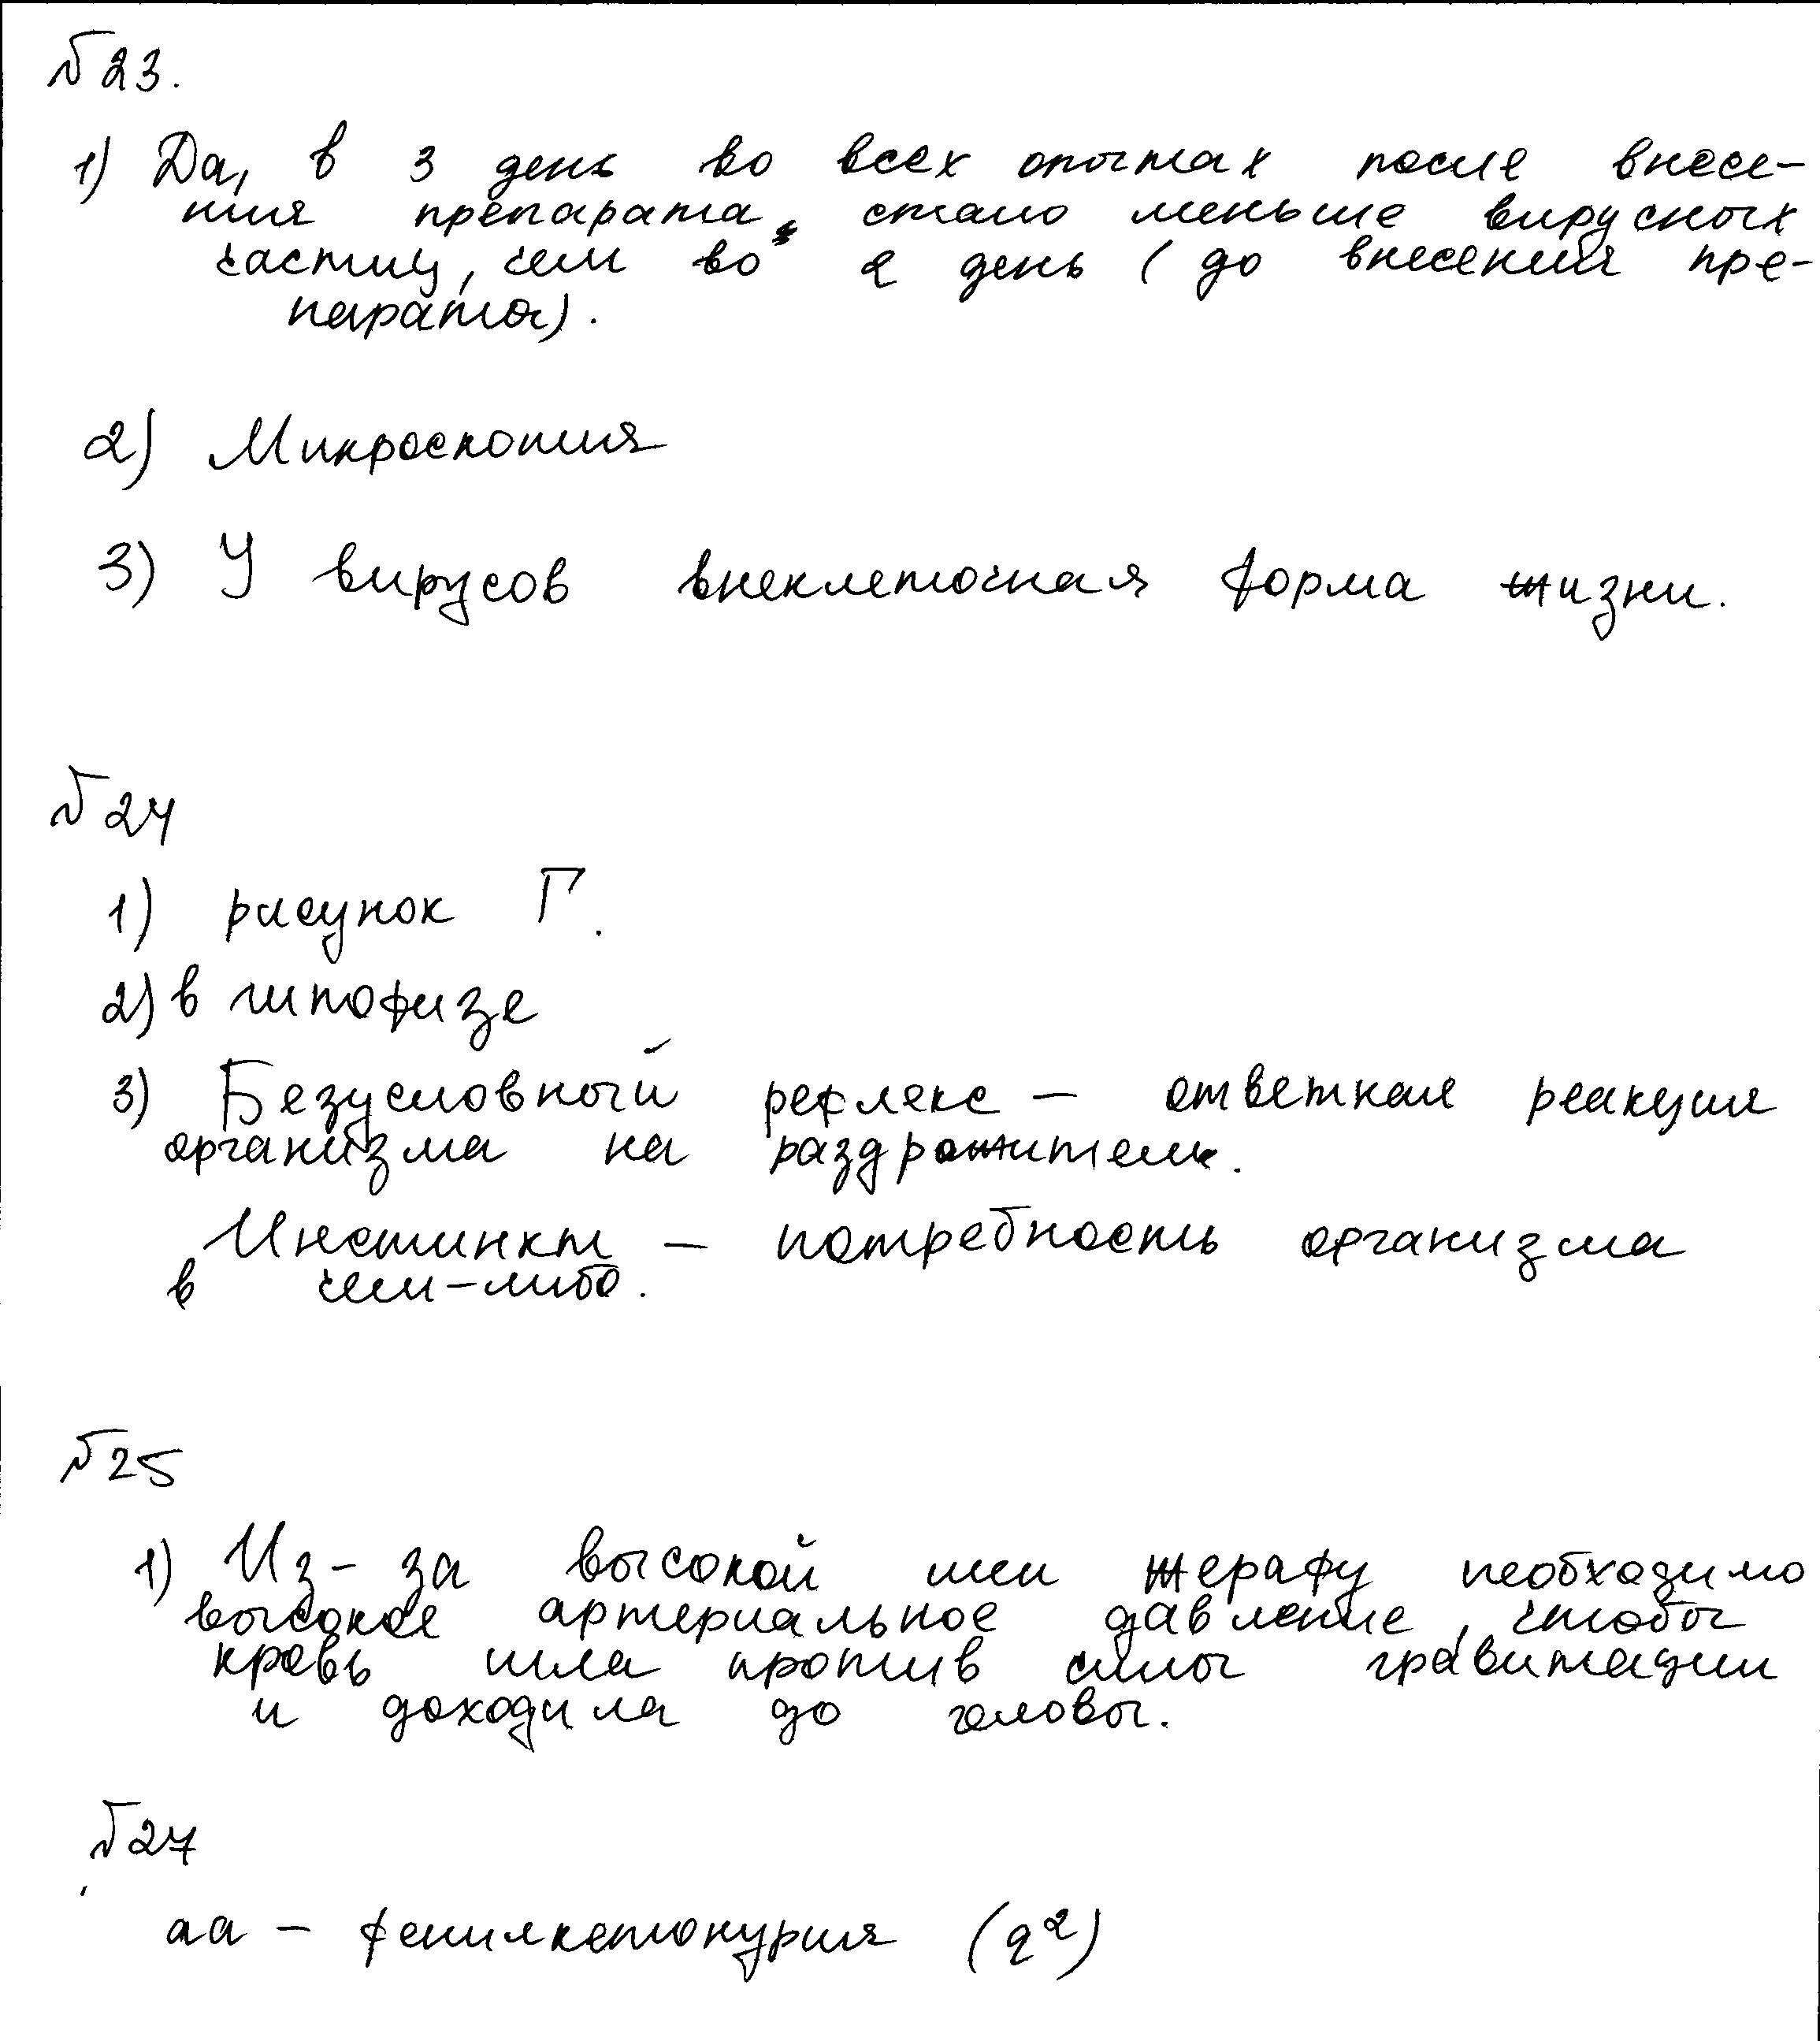 №23.
1) Да, в 3 день во всех опытах после внесе-
ния препарата, стало меньше вирусных
частиц, чем во 2 день (до внесения пре-
парата).
2) Микроскопия
3) У вирусов внеклеточная форма жизни.
№24
1) рисунок Г.
2) в гипофизе
3) Безусловный рефлекс – ответная реакция
организма на раздрожители.
Инстинкт – потребность организма
в чем-либо.
№25
1) Из-за высокой шеи жерафу необходимо
высокое артериальное давление, чтобы
кровь шла против силы гравитации
и доходила до головы.
№27
аа – фенилкетонурия (q²)